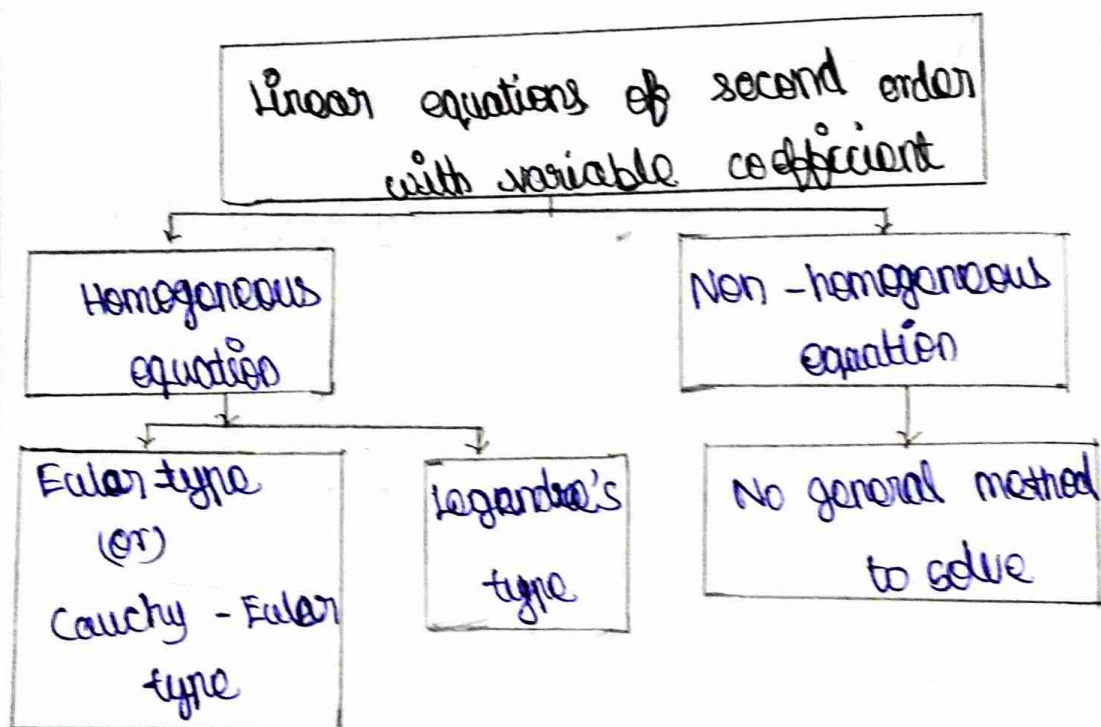 Linear equations of second order
with variable coefficient
Homogeneous
equation
Non-homogeneous
equation
Euler type
(or)
Cauchy - Euler
type
Legendre's
type
No general method
to solve